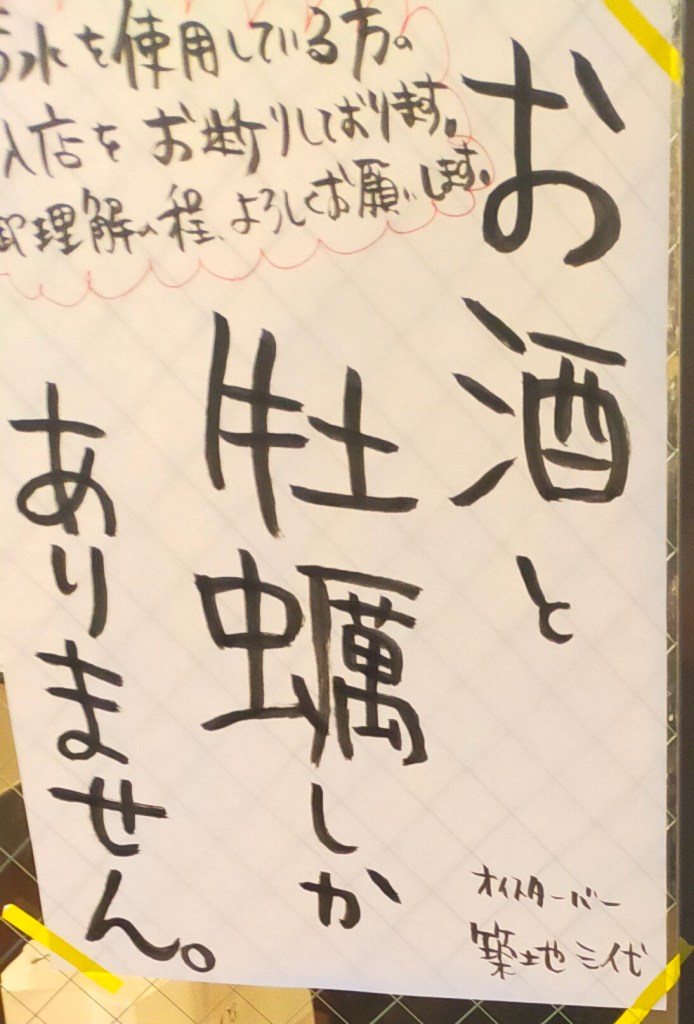 香水を使用している方の
入店をお断りしております。
御理解の程、よろしくお願いします。
お酒と
牡蠣しか
ありません。
オイスターバー
築地三代